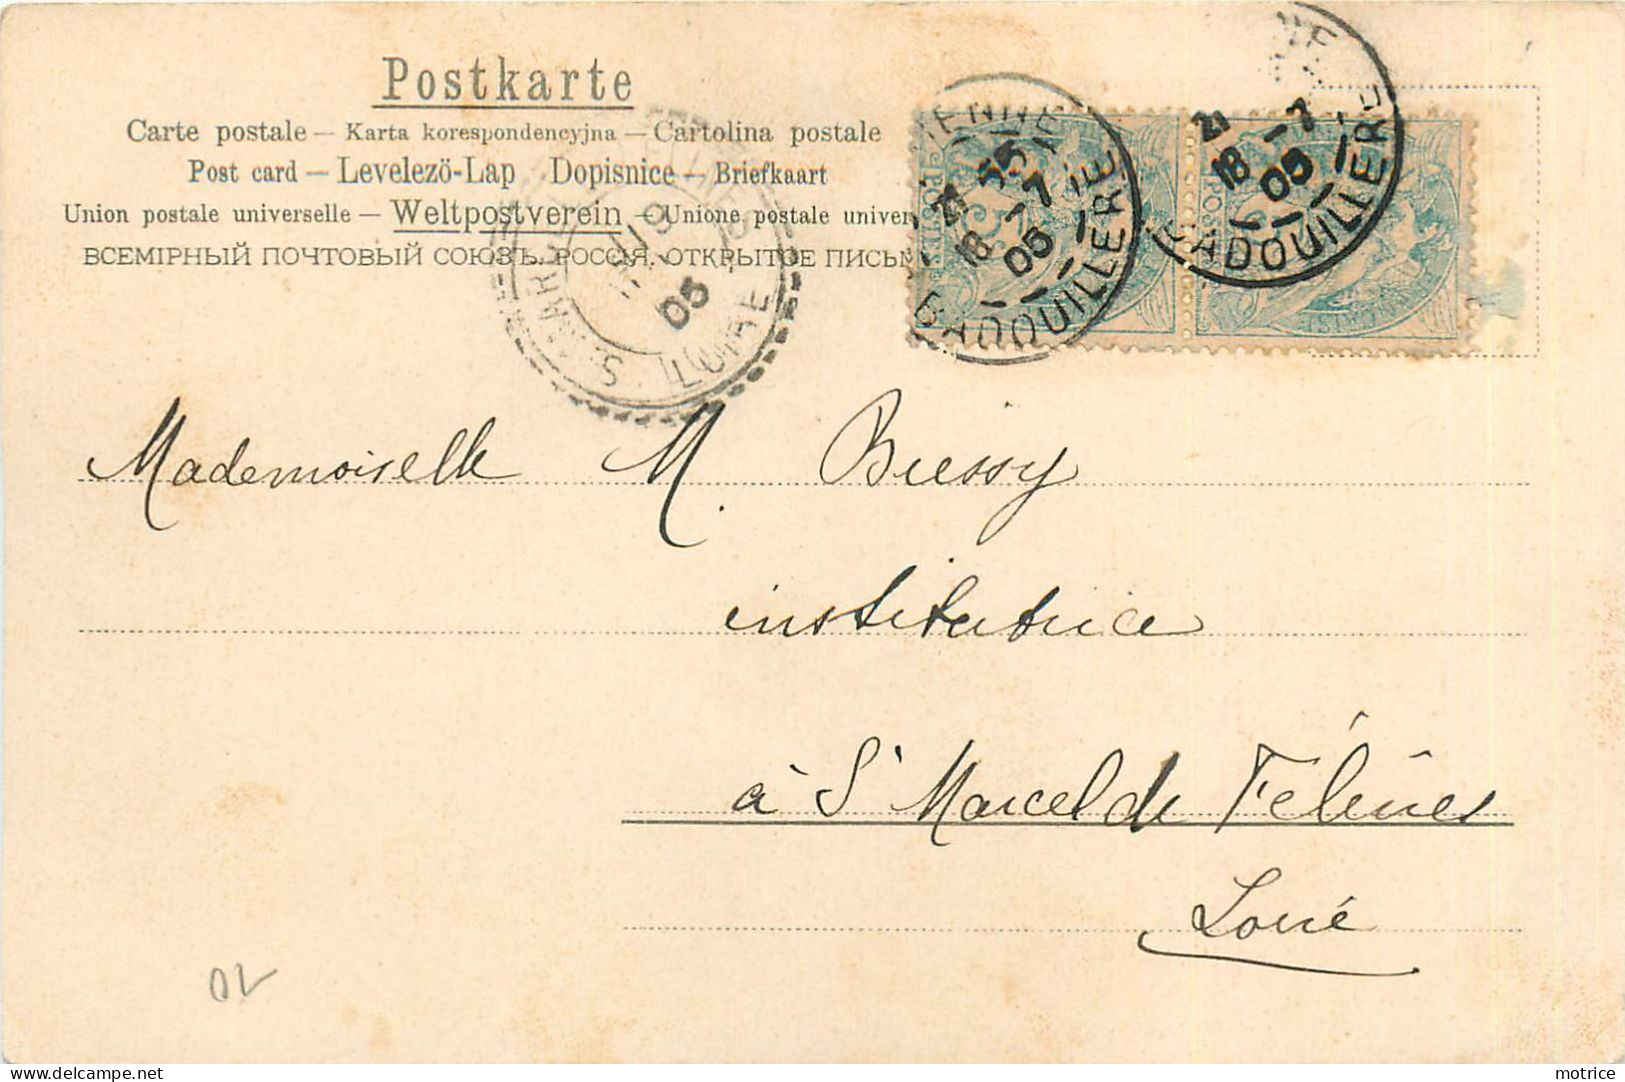 Postkarte
Carte postale – Karta korespondencyjna – Cartolina postale
Post card – Levelezö-Lap Dopisnice – Briefkaart
Union postale universelle – Weltpostverein – Unione postale univer
ВСЕМІРНЫЙ ПОЧТОВЫЙ СОЮЗЪ. РОССІЯ. ОТКРЫТОЕ ПИСЬМ
19
05
LOIRE
21
18 -7
05
BADOUILLERE
21
18 -7
05
BADOUILLERE
Mademoiselle M. Buessy
institutrice
à St Marcel de Félines
Loire
OL
motrice